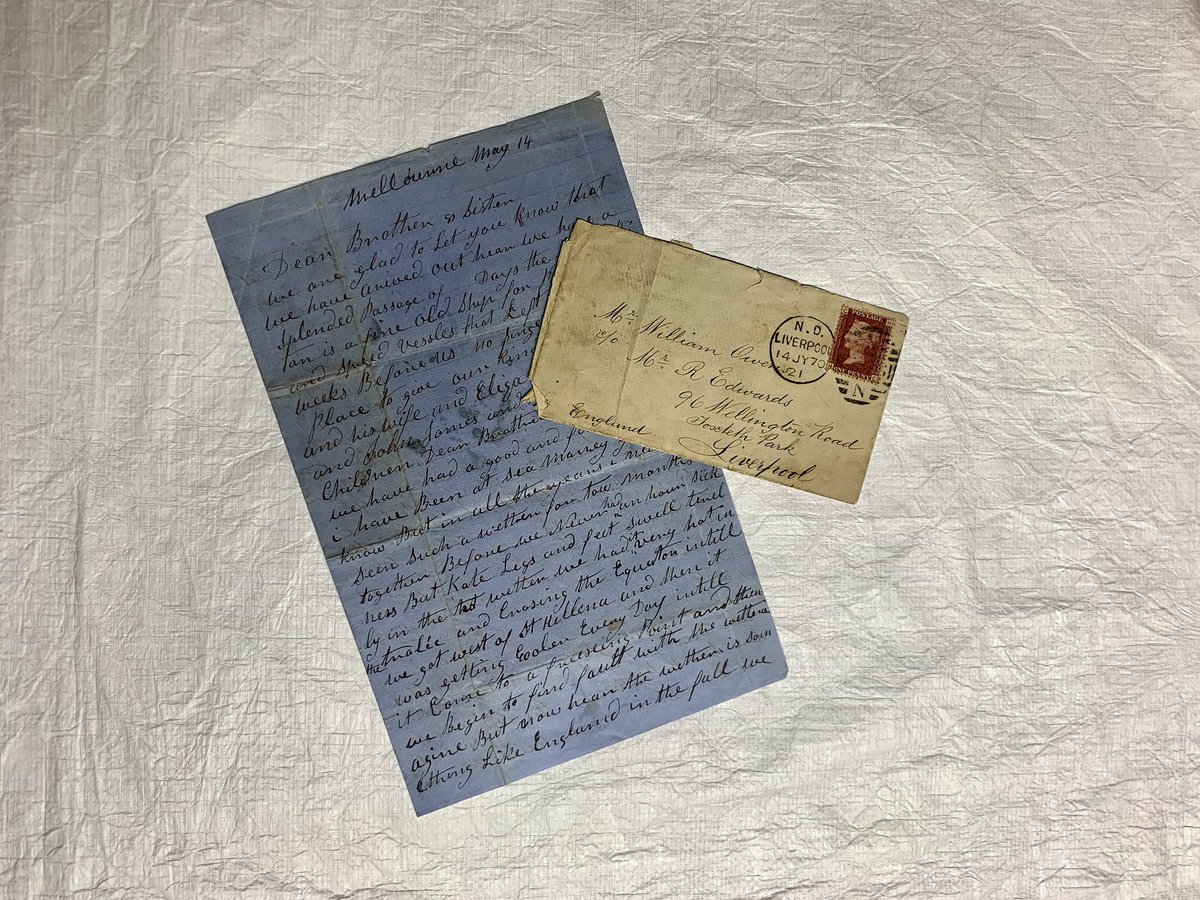 Melbourne May 14
Dear Brother & Sister
we are glad to Let you know that
we have arived out hear we have a
splended Passage of Days the
an is a fine Old Ship for
and Speed vessles that Left
weeks Before us no
Place to give our kin
and his wife and Eliza
and John James and
Children Dear Brother
we have had a good and
i have Been at sea maney
know But in all the years i
seen such a wether for tow months
together Before we Never had an hour sick
ness But Kate Legs and feet swell tend
ly in the hot wether we had it very hot in
the and Crosing the Equator intill
we got west of St Hellena and then it
was getting Cooler Every Day intill
it Come to a freesing Point and then
we Begin to find fault with the wether
agine But now hear the wether is som
ething Like England in the fall we
Mr William Owen
c/o Mr R Edwards
96 Wellington Road
Toxteth Park
Liverpool
England
N.D.
LIVERPOOL
14 JY 70
21
POSTAGE
ONE PENNY
N